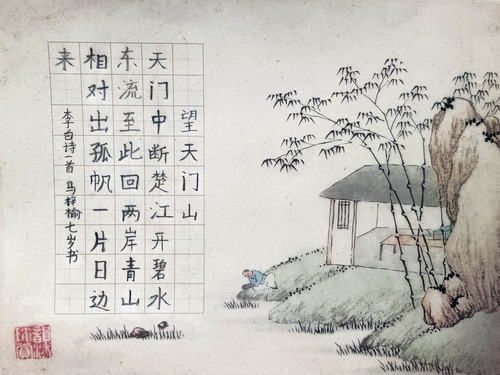 望天门山
天门中断楚江开碧水
东流至此回两岸青山
相对出孤帆一片日边
来
李白诗一首 马梓榆 七岁书